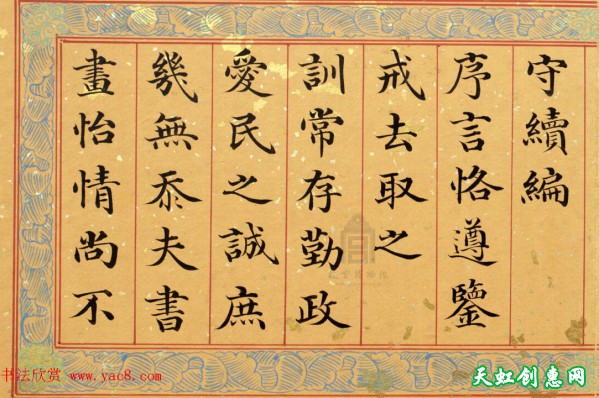 守續編
序言恪遵鑒
戒去取之
訓常存勤政
愛民之誠庶
幾無忝夫書
畫怡情尚不
书法欣赏 www.yac8.com
天虹创惠网